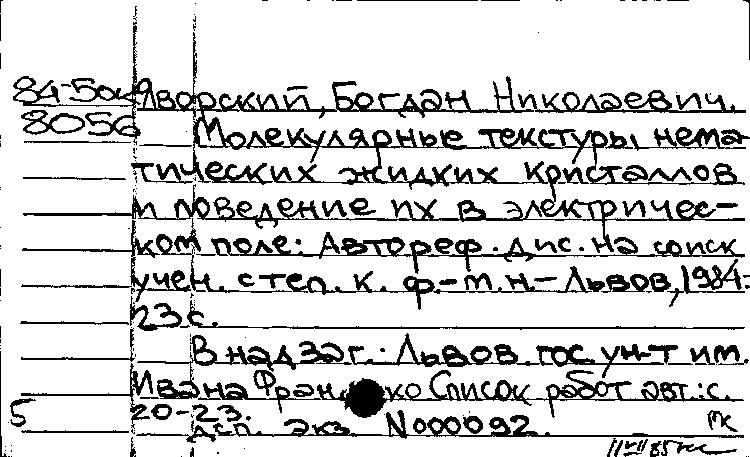 84-5оч Яворский, Богдан Николаевич.
8056 Молекулярные текстуры нема-
тических жидких кристаллов
и поведение их в электричес-
ком поле: Автореф. дис. на соиск
учен. степ. к. ф.-м.н.- Львов, 1984.
23 с.
В надзаг.: Львов. гос ун-т им.
Ивана Франко Список работ авт.: с.
20-23.
5 Дсп. экз N000092.